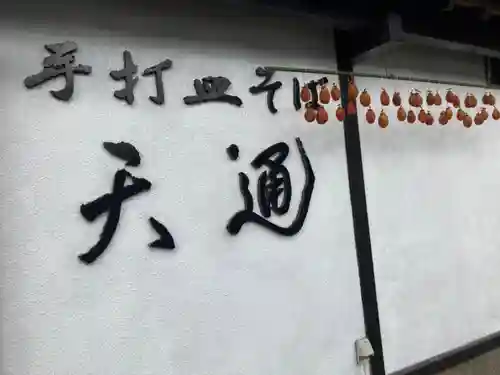 手打皿そば
天通